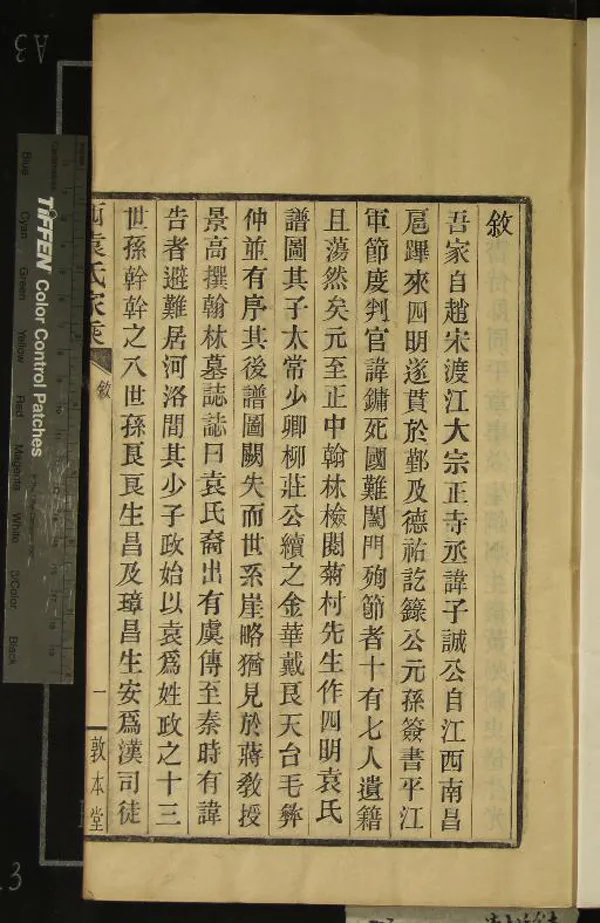 敘
吾家自趙宋渡江大宗正寺丞諱子誠公自江西南昌
扈蹕來四明遂貫於鄞及德祐訖籙公元孫簽書平江
軍節度判官諱鏞死國難闔門殉節者十有七人遺籍
且蕩然矣元至正中翰林檢閱菊村先生作四明袁氏
譜圖其子太常少卿柳莊公續之金華戴良天台毛彝
仲並有序其後譜圖闕失而世系崖略猶見於蔣敎授
景高撰翰林墓誌誌曰袁氏裔出有虞傳至秦時有諱
告者避難居河洛間其少子政始以袁爲姓政之十三
世孫幹幹之八世孫良良生昌及璋昌生安爲漢司徒
西袁氏家乘
敘
一
敦本堂
TIFFEN Color Control Patches
Blue
Cyan
Green
Yellow
Red
Magenta
White
3/Color
Black
A3